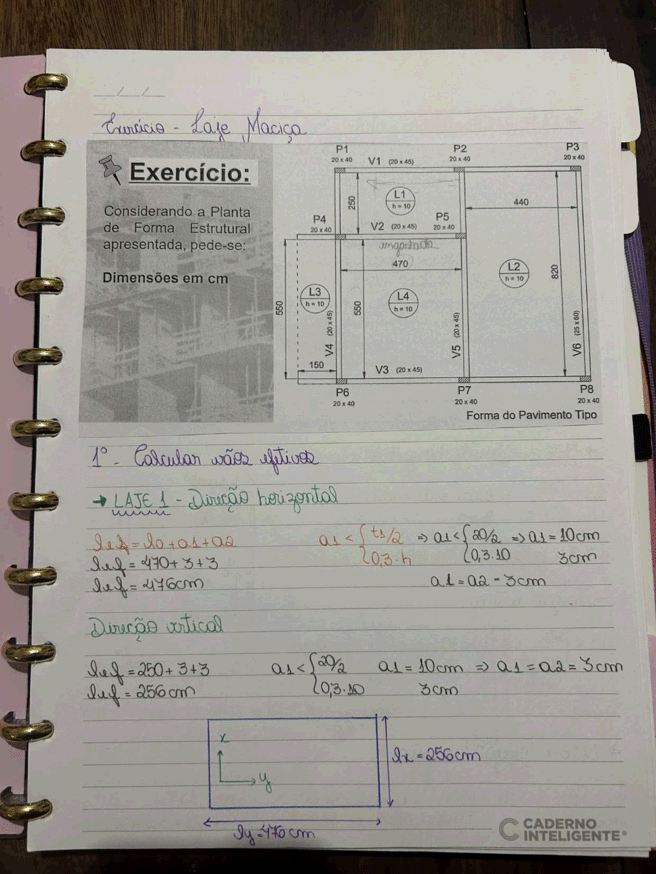 / /
Exercício - Laje Maciça
Exercício:
Considerando a Planta
de Forma Estrutural
apresentada, pede-se:
Dimensões em cm
P1
20 x 40
V1 (20 x 45)
P2
20 x 40
P3
20 x 40
250
L1
h = 10
440
P4
20 x 40
V2 (20 x 45)
P5
20 x 40
engastada
470
L2
h = 10
820
550
L3
h = 10
550
L4
h = 10
V4 (20 x 45)
V5 (20 x 45)
V6 (25 x 60)
150
V3 (20 x 45)
P6
20 x 40
P7
20 x 40
P8
20 x 40
Forma do Pavimento Tipo
1º - Calcular vãos efetivos
→ LAJE 1 - Direção horizontal
lef = l0 + a1 + a2 a1 < { t1/2 ⇒ a1 < { 20/2 ⇒ a1 = 10cm
lef = 470 + 3 + 3 0,3·h 0,3·10 3cm
lef = 476cm a1 = a2 - 3cm
Direção vrtical
lef = 250 + 3 + 3 a1 < { 20/2 a1 = 10cm ⇒ a1 = a2 = 3cm
lef = 256cm 0,3·10 3cm
x
y
lx = 256cm
ly = 476cm
CADERNO
INTELIGENTE®